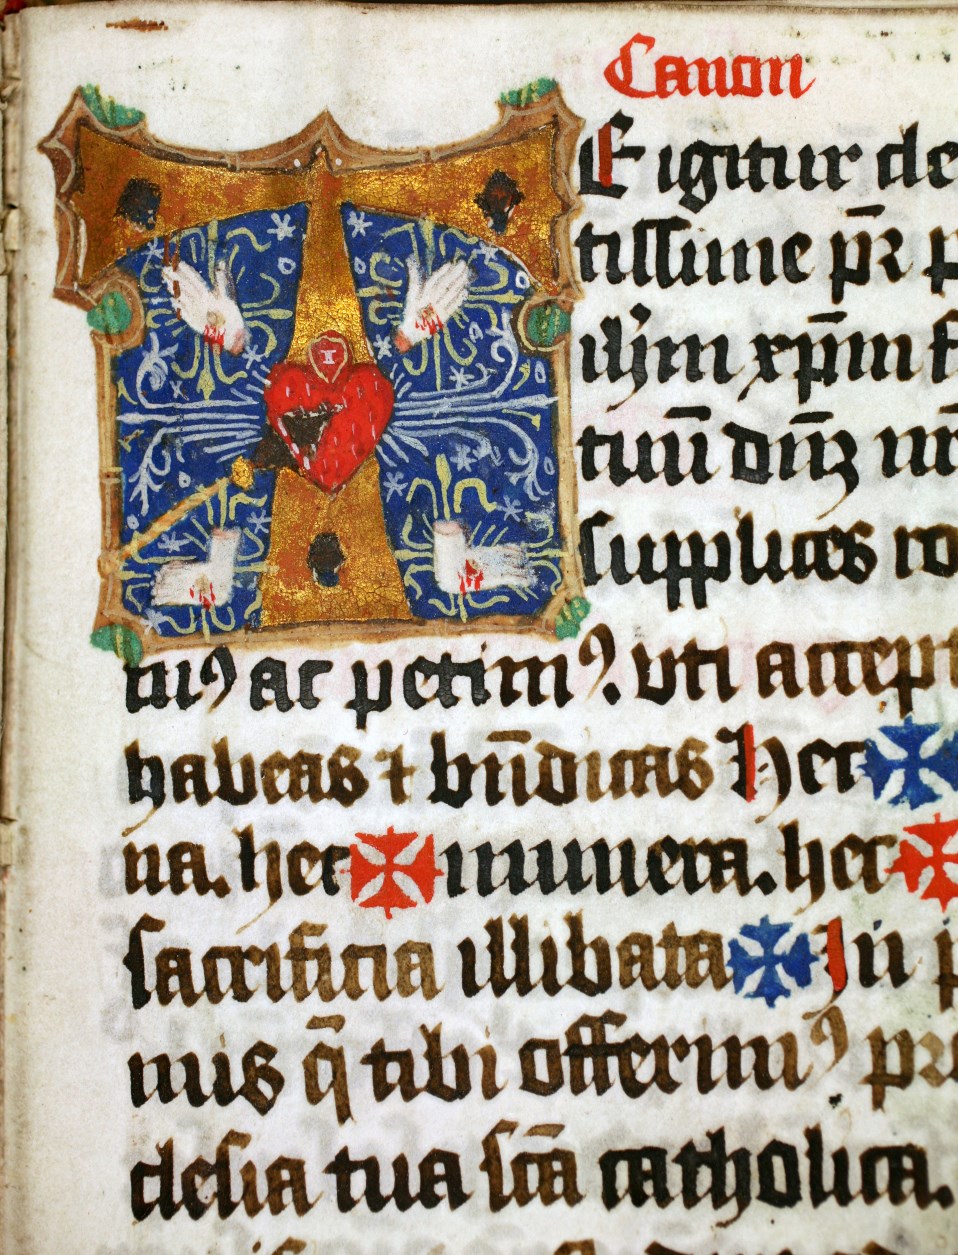 Canon
TE igitur cle
tissime p̄r p
ihm xp̄m f
tuū dn̄ꝫ nr̄
supplices ro
mꝰ ac petimꝰ. vti accep
habeas ⁊ bn̄dicas Hec ✠
na. hec ✠ munera. hec ✠
sacrificia illibata ✠ In p
mis q̄ tibi offerimꝰ pr
clesia tua sc̄a catholica.